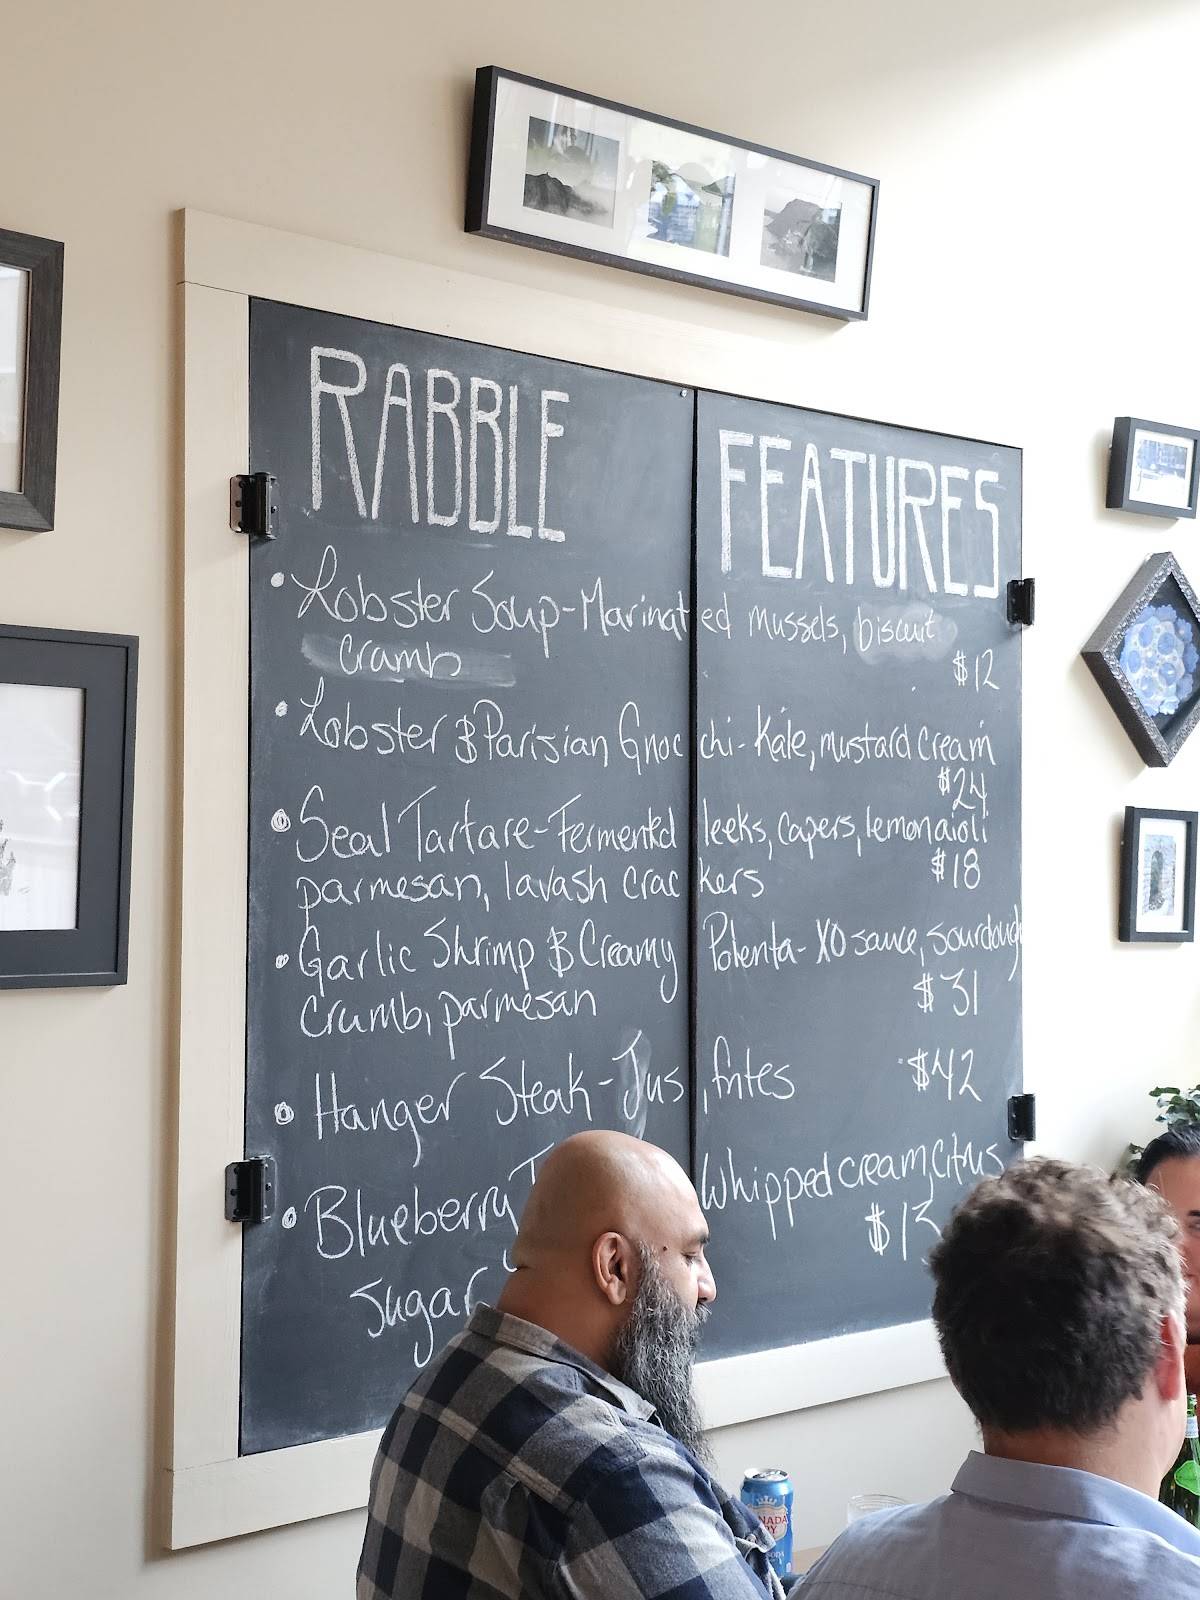 RABBLE FEATURES
• Lobster Soup - Marinated mussels, biscuit
crumb
$12
• Lobster & Parisian Gnocchi - Kale, mustard cream
$24
• Seal Tartare - Fermented leeks, capers, lemon aioli
parmesan, lavash crackers $18
• Garlic Shrimp & Creamy Polenta - XO sauce, sourdough
crumb, parmesan $31
• Hanger Steak - Jus, frites $42
• Blueberry Whipped cream, Citrus
Sugar $13